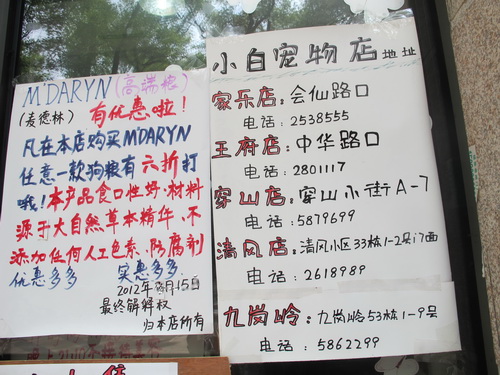 M'DARYN (高端粮)
(麦德林) 有优惠啦!
凡在本店购买MDARYN
任意一款狗粮有六折打
哦!本产品食口性好·材料
源于大自然草本精华、不
添加任何人工色素、防腐剂
优惠多多 实惠多多
2012年8月15日
最终解释权
归本店所有
小白宠物店 地址
家乐店:会仙路口
电话:2538555
王府店:中华路口
电话:2801117
穿山店:穿山小街A-7
电话:5879699
清风店:清风小区33栋1-2号门面
电话:2618989
九岗岭:九岗岭53栋1-9号
电话:5862299